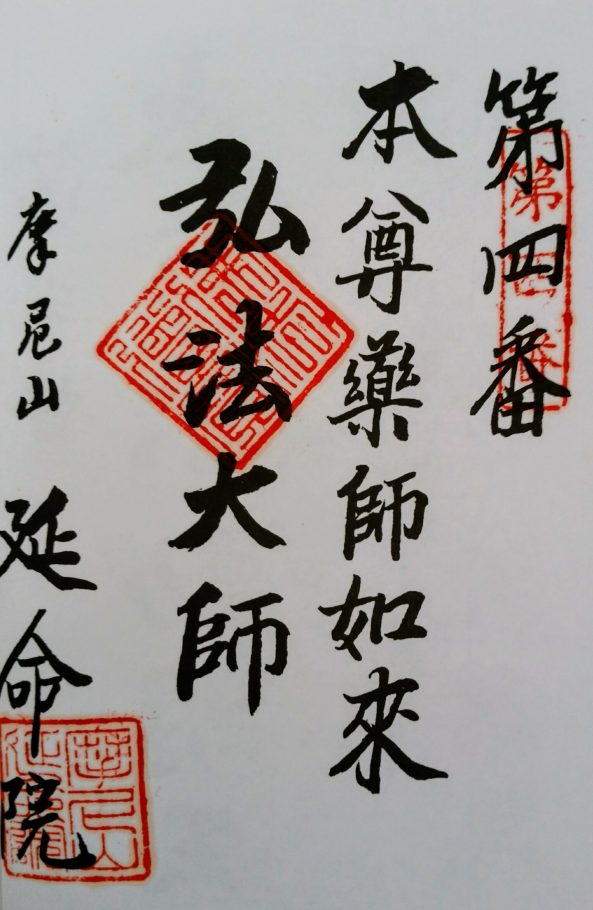 第四番
本尊藥師如來
弘法大師
摩尼山
延命院
第四番
摩尼山
延命院